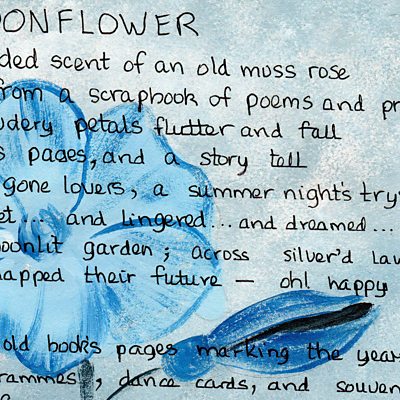 OONFLOWER
ded scent of an old muss rose
from a scrapbook of poems and pr
wdery petals flutter and fall
s pages, and a story tell
gone lovers, a summer night's trys
et.... and lingered... and dreamed...
oonlit garden; across silver'd law
napped their future — oh! happy
old book's pages marking the year
rammes, dance cards, and souven